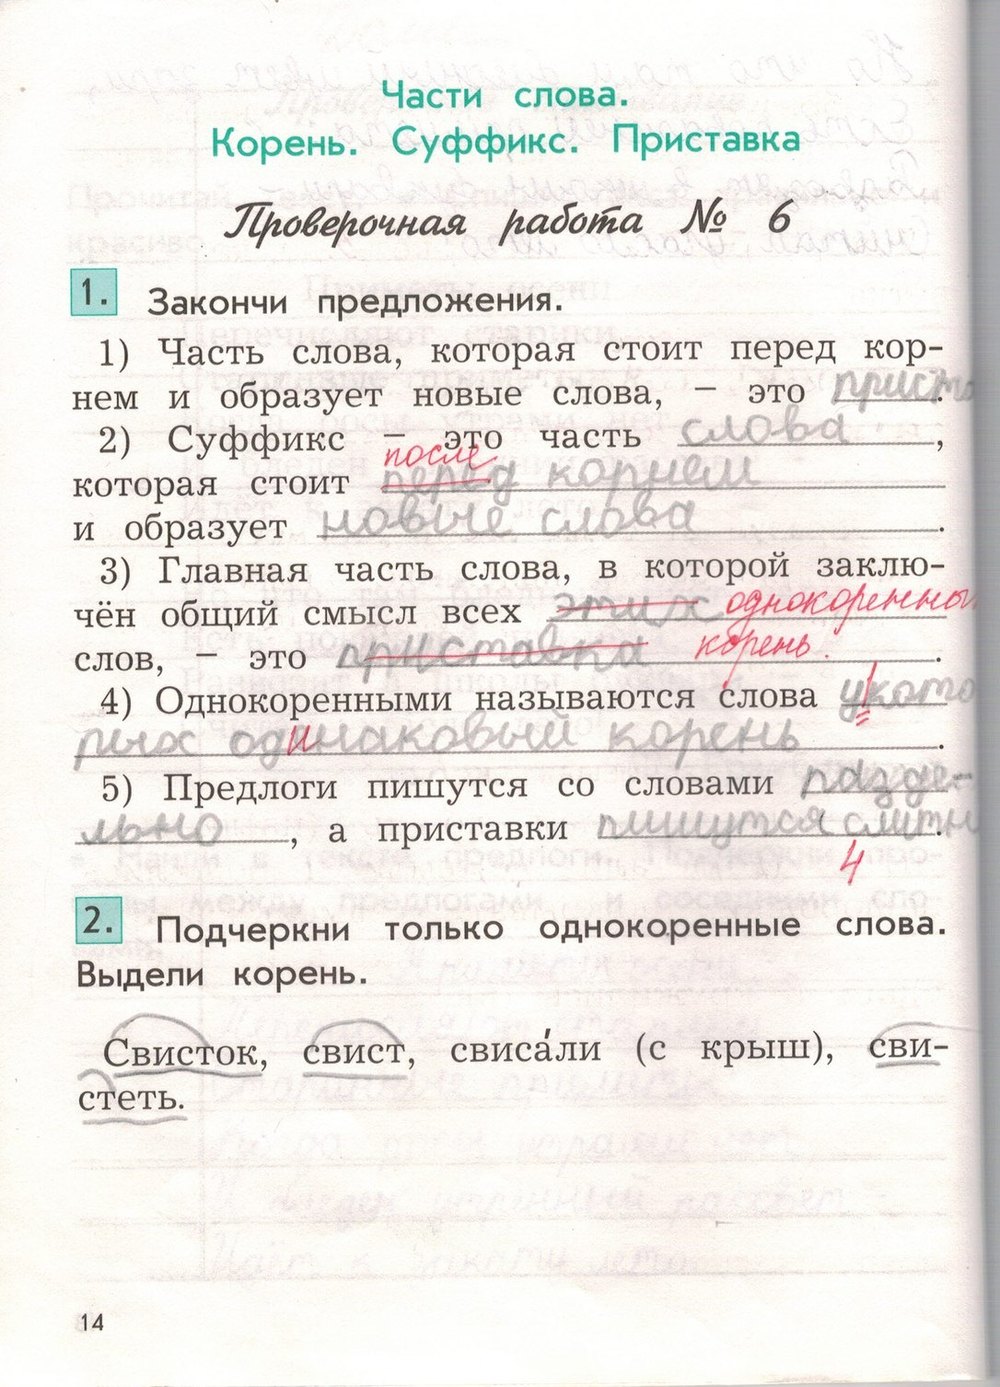 Части слова.
Корень. Суффикс. Приставка
Проверочная работа № 6
1. Закончи предложения.
1) Часть слова, которая стоит перед кор-
нем и образует новые слова, – это приста.
2) Суффикс – это часть слова,
после
которая стоит перед корнем
и образует новые слова.
3) Главная часть слова, в которой заклю-
чён общий смысл всех этих однокоренны
слов, – это приставка корень.
4) Однокоренными называются слова укото
рых одинаковый корень.
5) Предлоги пишутся со словами разде-
льно, а приставки пишутся слитн.
4
2. Подчеркни только однокоренные слова.
Выдели корень.
Свисток, свист, свиса́ли (с крыш), сви-
стеть.
14